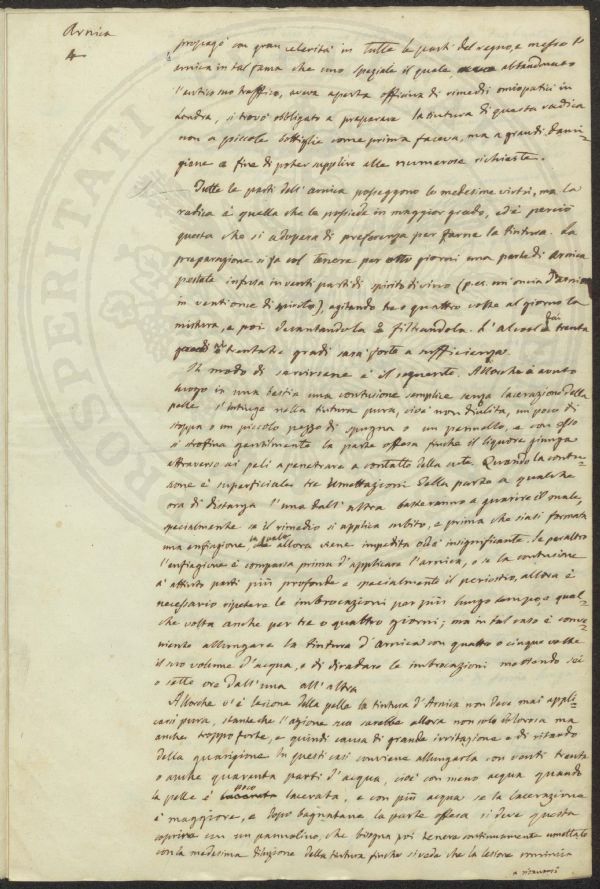 Arnica
4
propagò con gran celerità in tutte le parti del regno, e messo l'
arnica in tal fama che uno speziale il quale, abbandonato
l'antico suo traffico, aveva aperta officina di rimedii omiopatici in
Londra, si trovò obbligato a preparare la tintura di questa radica
non a piccole bottiglie come prima faceva, ma a grandi dami-
giane a fine di poter supplire alle numerose richieste.
Tutte le parti dell'arnica posseggono le medesime virtù, ma la
radica è quella che le possiede in maggior grado, ed è perciò
questa che si adopera di preferenza per farne la tintura. La
preparazione si fa col tenere per otto giorni una parte di arnica
pestata infusa in venti parti di spirito di vino (p. es. un'oncia d'arnica
in venti once di spirito), agitando tre o quattro volte al giorno la
mistura, e poi decantandola e filtrandola. L'alcool dai trenta
ai trentatre gradi sarà forte a sufficienza.
Il modo di servirsene è il seguente. Allorché è avuto
luogo in una bestia una contusione semplice senza lacerazione della
pelle s'intinge nella tintura pura, cioè non diluita, un poco di
stoppa o un piccolo pezzo di spugna o un pennello, e con esso
si strofina gentilmente la parte offesa finché il liquore giunga
attraverso ai peli a penetrare a contatto della cute. Quando la contu-
sione è superficiale tre umettazioni della parte a qualche
ora di distanza l'una dall'altra basteranno a guarire il male,
specialmente se il rimedio si applica subito, e prima che siasi formata
una enfiagione, la quale allora viene impedita od è insignificante. Se peraltro
l'enfiagione è comparsa prima d'applicare l'arnica, o se la contusione
à afflitto parti più profonde e specialmente il periostio, allora è
necessario ripetere le imbrocazioni per più lungo tempo, e qual-
che volta anche per tre o quattro giorni; ma in tal caso è conve-
niente allungare la tintura d'Arnica con quattro o cinque volte
il suo volume d'acqua, e di diradare le imbrocazioni mettendo sei
o sette ore dall'una all'altra
Allorché v'è lesione della pelle la tintura d'Arnica non deve mai appli-
carsi pura, stanteché l'azione sua sarebbe allora non solo dolorosa ma
anche troppo forte, e quindi causa di grande irritazione e di ritardo
della guarigione In questi casi conviene allungarla con venti trenta
o anche quaranta parti d'acqua, cioè con meno acqua quando
la pelle è poco lacerata, e con più acqua se la lacerazione
è maggiore, e dopo bagnatane la parte offesa si deve questa
coprire con un pannolino, che bisogna poi tenere continuamente umettato
con la medesima diluzione della tintura finché si veda che la lesione comincia
a risanarsi